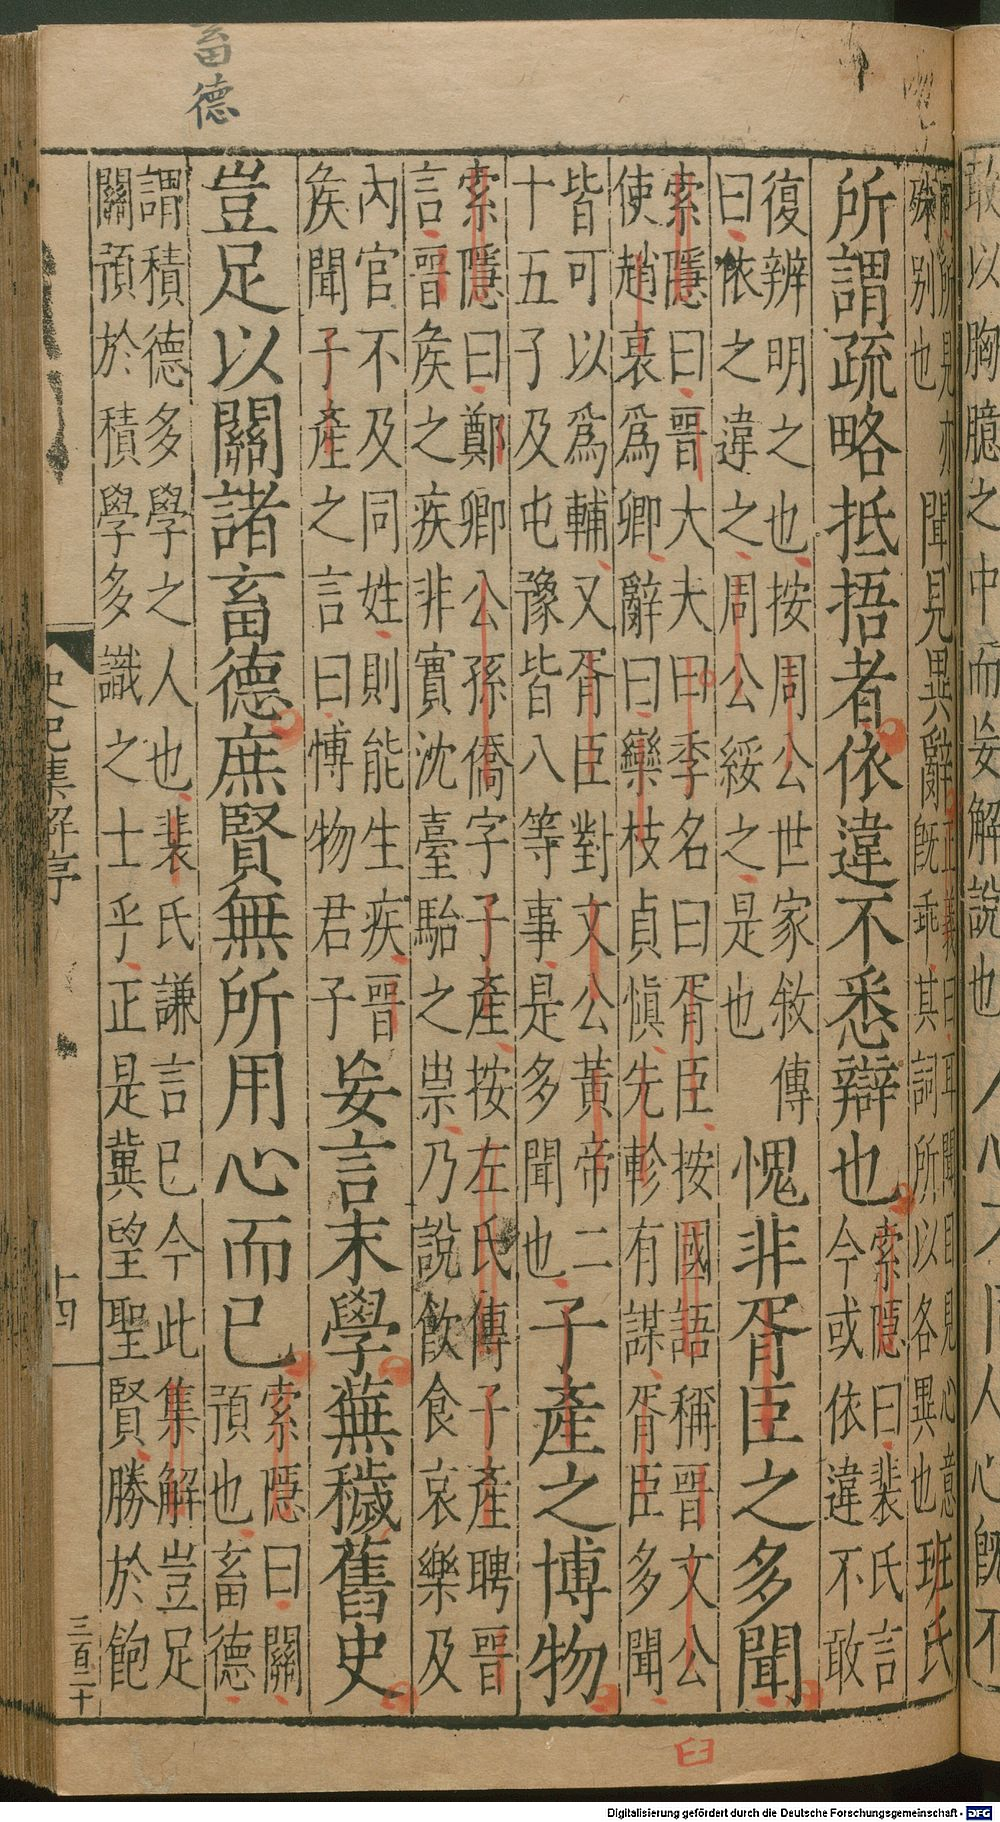 敢以胸臆之中而妄解說也人心不同人心旣不
同所見亦
殊別也
聞見異辭
正義曰耳聞目見心意
旣乖其詞所以各異也
班氏
所謂疏略抵捂者依違不悉辯也
索隱曰裴氏言
今或依違不敢
復辨明之也按周公世家敘傳
曰依之違之周公綏之是也
愧非胥臣之多聞
索隱曰晉大夫曰季名曰胥臣按國語稱晉文公
使趙衰爲卿辭曰欒枝貞慎先軫有謀胥臣多聞
皆可以爲輔又胥臣對文公黃帝二
十五子及屯豫皆八等事是多聞也
子產之博物
索隱曰鄭卿公孫僑字子產按左氏傳子產聘晉
言晉矦之疾非實沈臺駘之祟乃說飲食哀樂及
內官不及同姓則能生疾晉
矦聞子產之言曰愽物君子
妄言末學蕪穢舊史
豈足以關諸畜德庶賢無所用心而已
索隱曰關
預也畜德
謂積德多學之人也裴氏謙言已今此集解豈足
關預於積學多識之士乎正是冀望聖賢勝於飽
史記集解序
十四
三百二十
畜德
臼
Digitalisierung gefördert durch die Deutsche Forschungsgemeinschaft - DFG